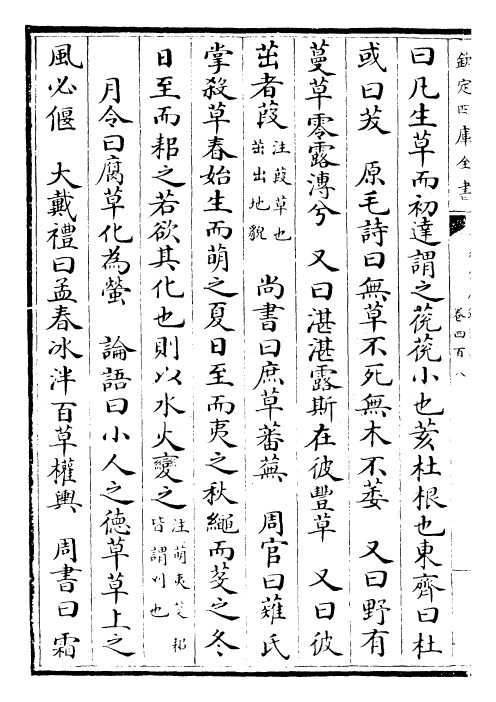 欽定四庫全書
卷四百八
曰凡生草而初達謂之茷茷小也荄杜根也東齊曰杜
或曰茇　原毛詩曰無草不死無木不萎　又曰野有
蔓草零露漙兮　又曰湛湛露斯在彼豐草　又曰彼
茁者葭注葭草也茁出地貌　尚書曰庶草蕃蕪　周官曰薙氏
掌殺草春始生而萌之夏日至而夷之秋繩而芟之冬
日至而耜之若欲其化也則以水火變之注萌夷芟耜皆謂刈也
月令曰腐草化為螢　論語曰小人之德草草上之
風必偃　大戴禮曰孟春冰泮百草權輿　周書曰霜